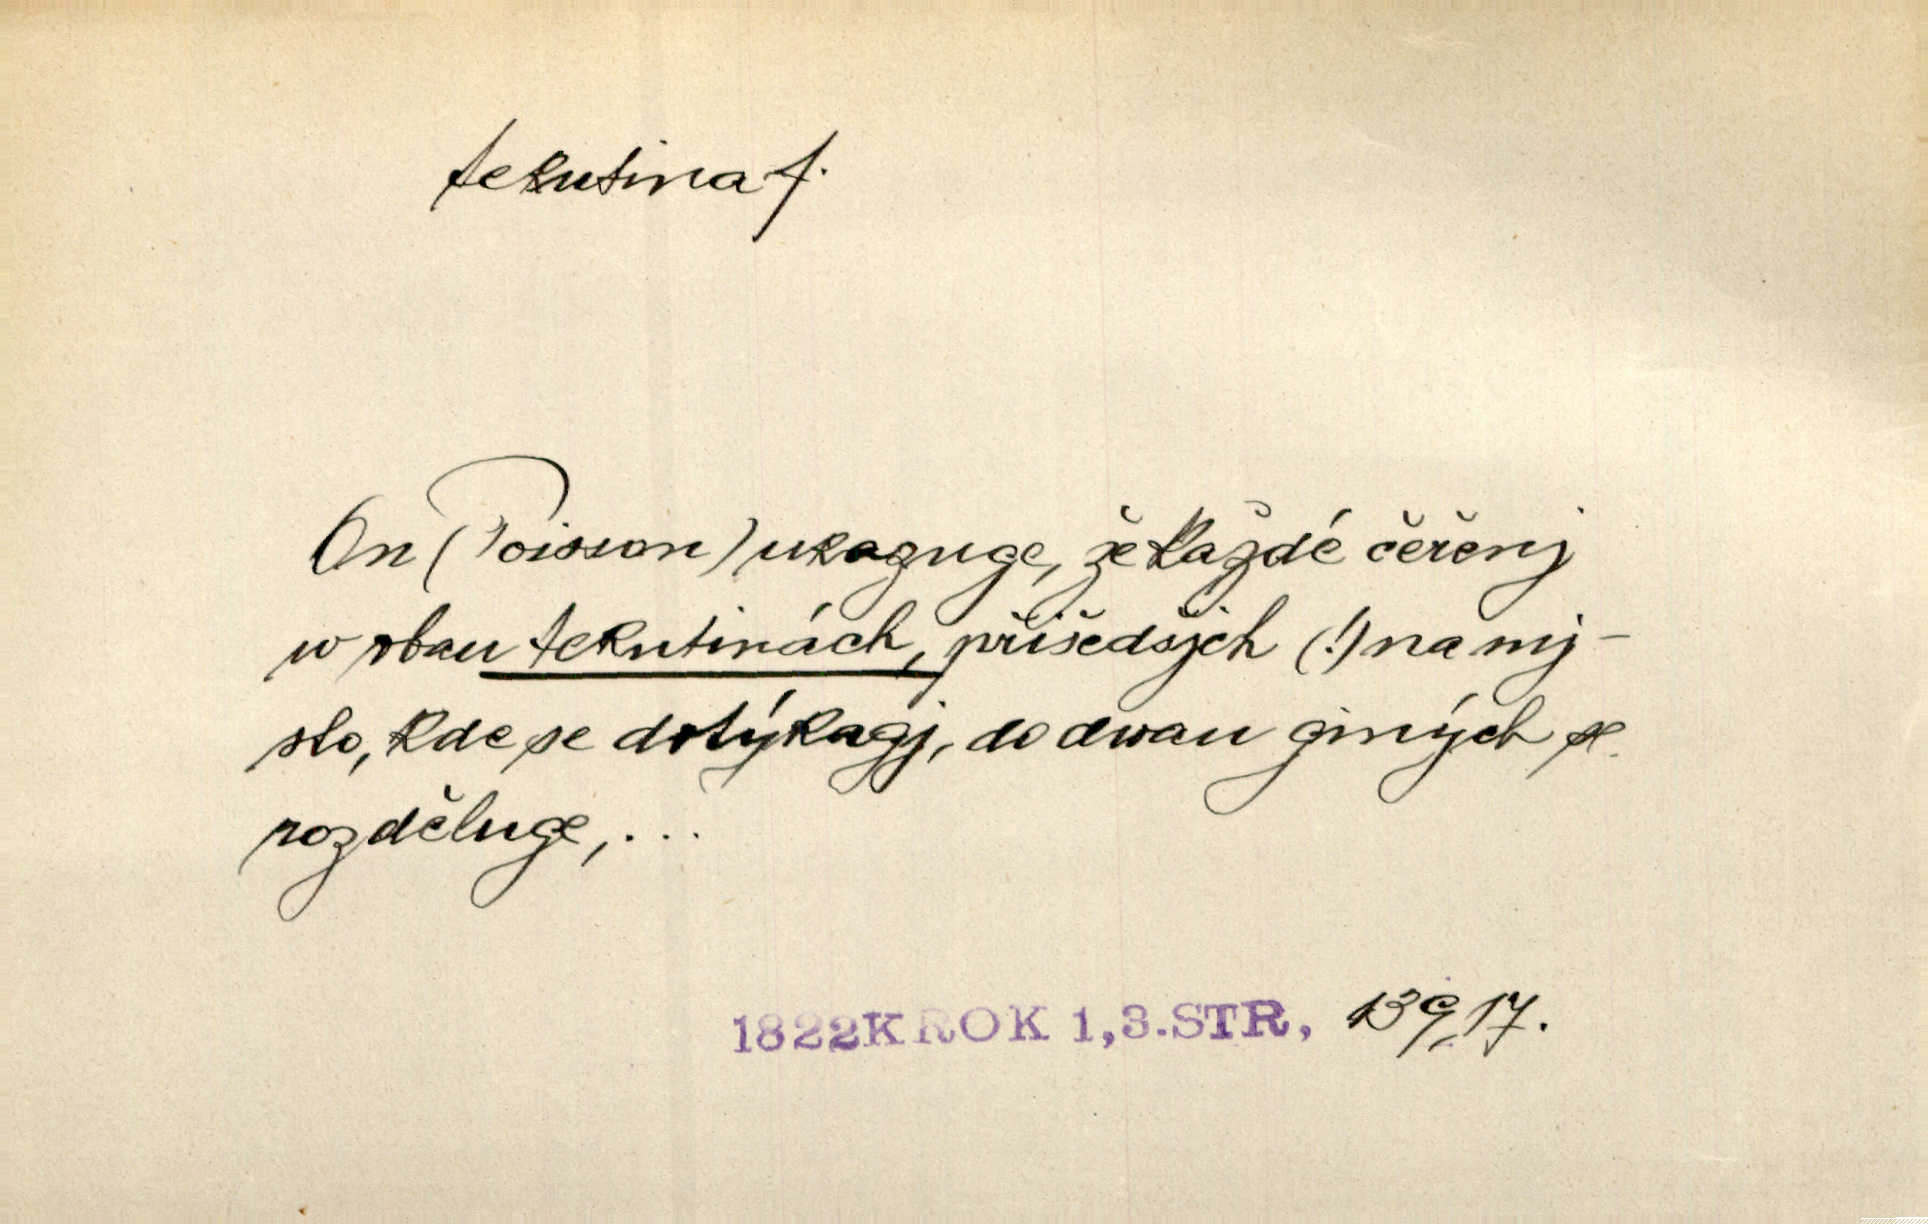 tekutina f.
On (Poisson) ukazuge, že každé čeřenj
w obau tekutinách, přišedšjch (!) na mj-
sto, kde se dotýkagj, do dwau giných se
rozděluge, ...
1822 KROK 1,3.STR, 139,17.